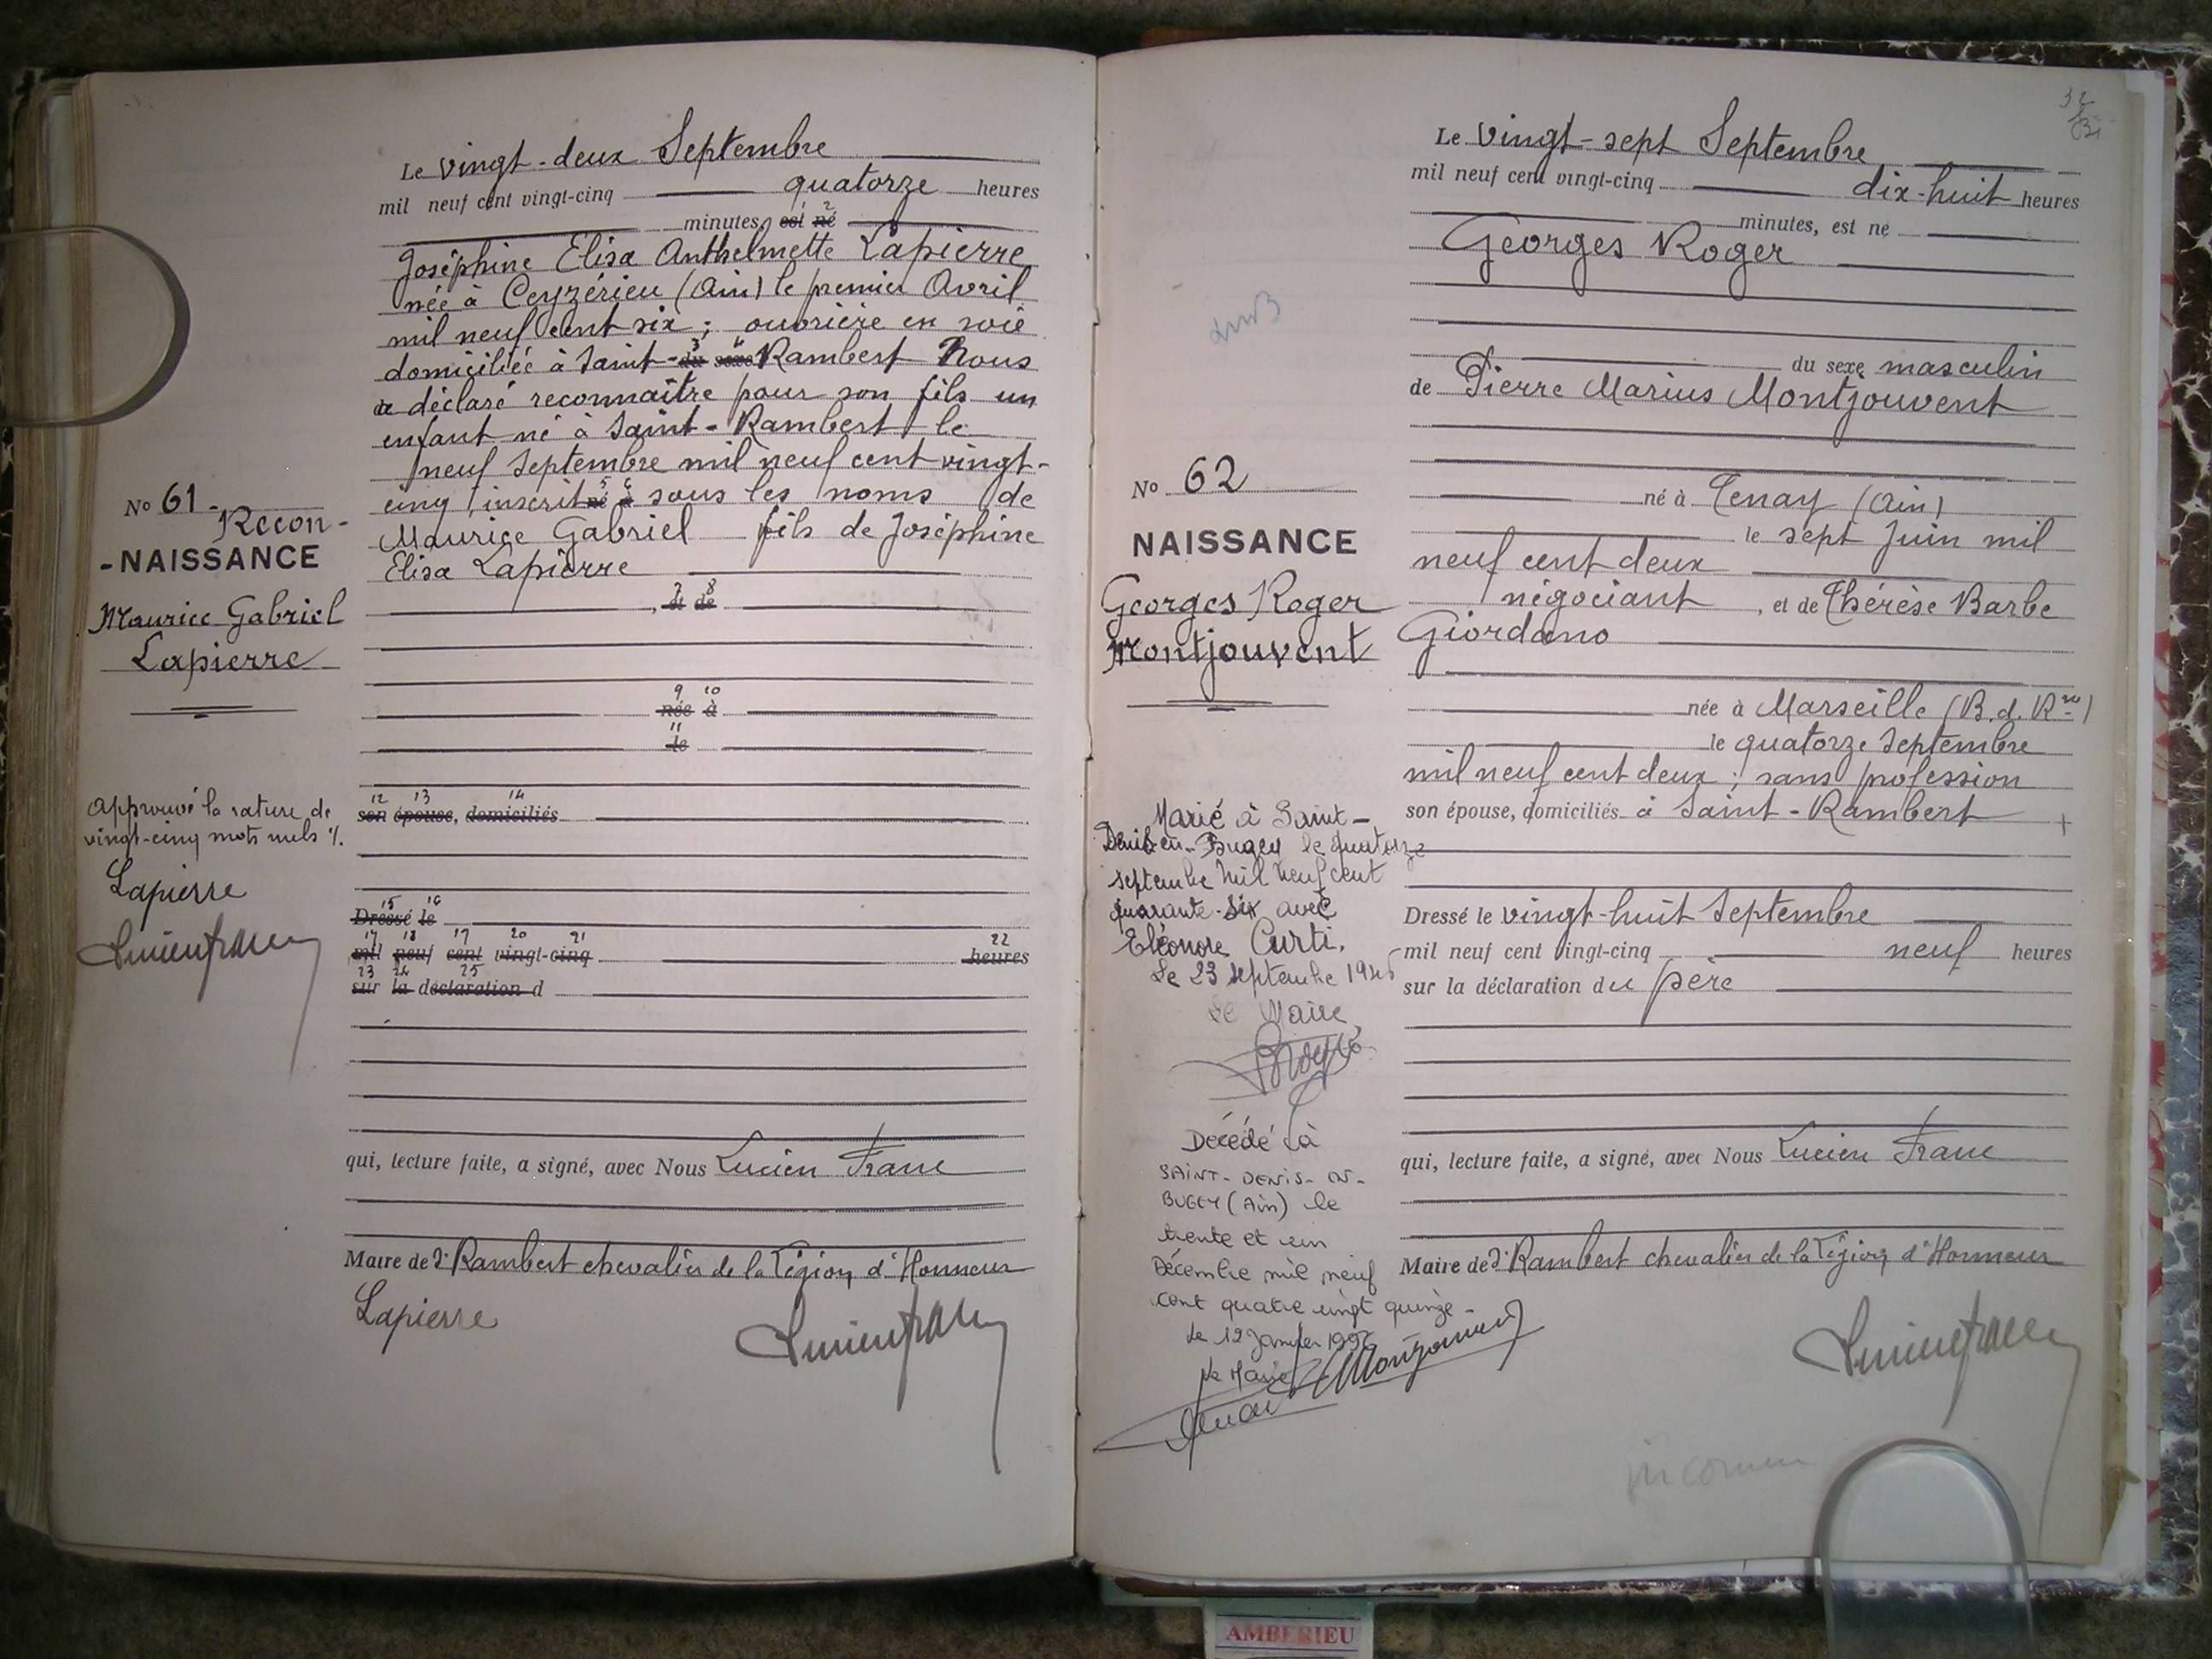 Le vingt-deux Septembre
mil neuf cent vingt-cinq quatorze heures
minutes, est né
Joséphine Elisa Anthelmette Lapierre
née à Ceyzérieu (Ain) le premier Avril
mil neuf cent six ; ouvrière en soie
domiciliée à Saint- du sexe Rambert Nous
a déclaré reconnaître pour son fils un
enfant né à Saint-Rambert le
neuf Septembre mil neuf cent vingt-
cinq inscrit né à sous les noms de
Maurice Gabriel fils de Joséphine
Elisa Lapierre
, et de
née à
le
son épouse, domiciliés
Dressé le
mil neuf cent vingt-cinq heures
sur la déclaration d
qui, lecture faite, a signé, avec Nous Lucien Franc
Maire de St Rambert chevalier de la Légion d'Honneur
Lapierre
No 61 Recon-
-NAISSANCE
Maurice Gabriel
Lapierre
Approuvé la rature de
vingt-cinq mots nuls
Lapierre
Lucien Franc
Le vingt-sept Septembre
mil neuf cent vingt-cinq dix-huit heures
minutes, est né
Georges Roger
du sexe masculin
de Pierre Marius Montjouvent
né à Tenay (Ain)
le sept Juin mil
neuf cent deux
négociant , et de Thérèse Barbe
Giordano
née à Marseille (B. d. Rne)
le quatorze Septembre
mil neuf cent deux ; sans profession
son épouse, domiciliés à Saint-Rambert
Dressé le vingt-huit Septembre
mil neuf cent vingt-cinq neuf heures
sur la déclaration du père
qui, lecture faite, a signé, avec Nous Lucien Franc
Maire de St Rambert chevalier de la Légion d'Honneur
Lucien Franc
No 62
NAISSANCE
Georges Roger
Montjouvent
Marié à Saint-
Denis-en-Bugey le quatorze
septembre mil neuf cent
quarante-six avec
Eléonore Curti.
Le 23 septembre 1946
Le Maire
Décédé à
SAINT-DENIS-EN-
BUGEY (Ain) le
trente et un
Décembre mil neuf
cent quatre vingt quinze-
Le 12 Janvier 1996
Le Maire
AMBERIEU